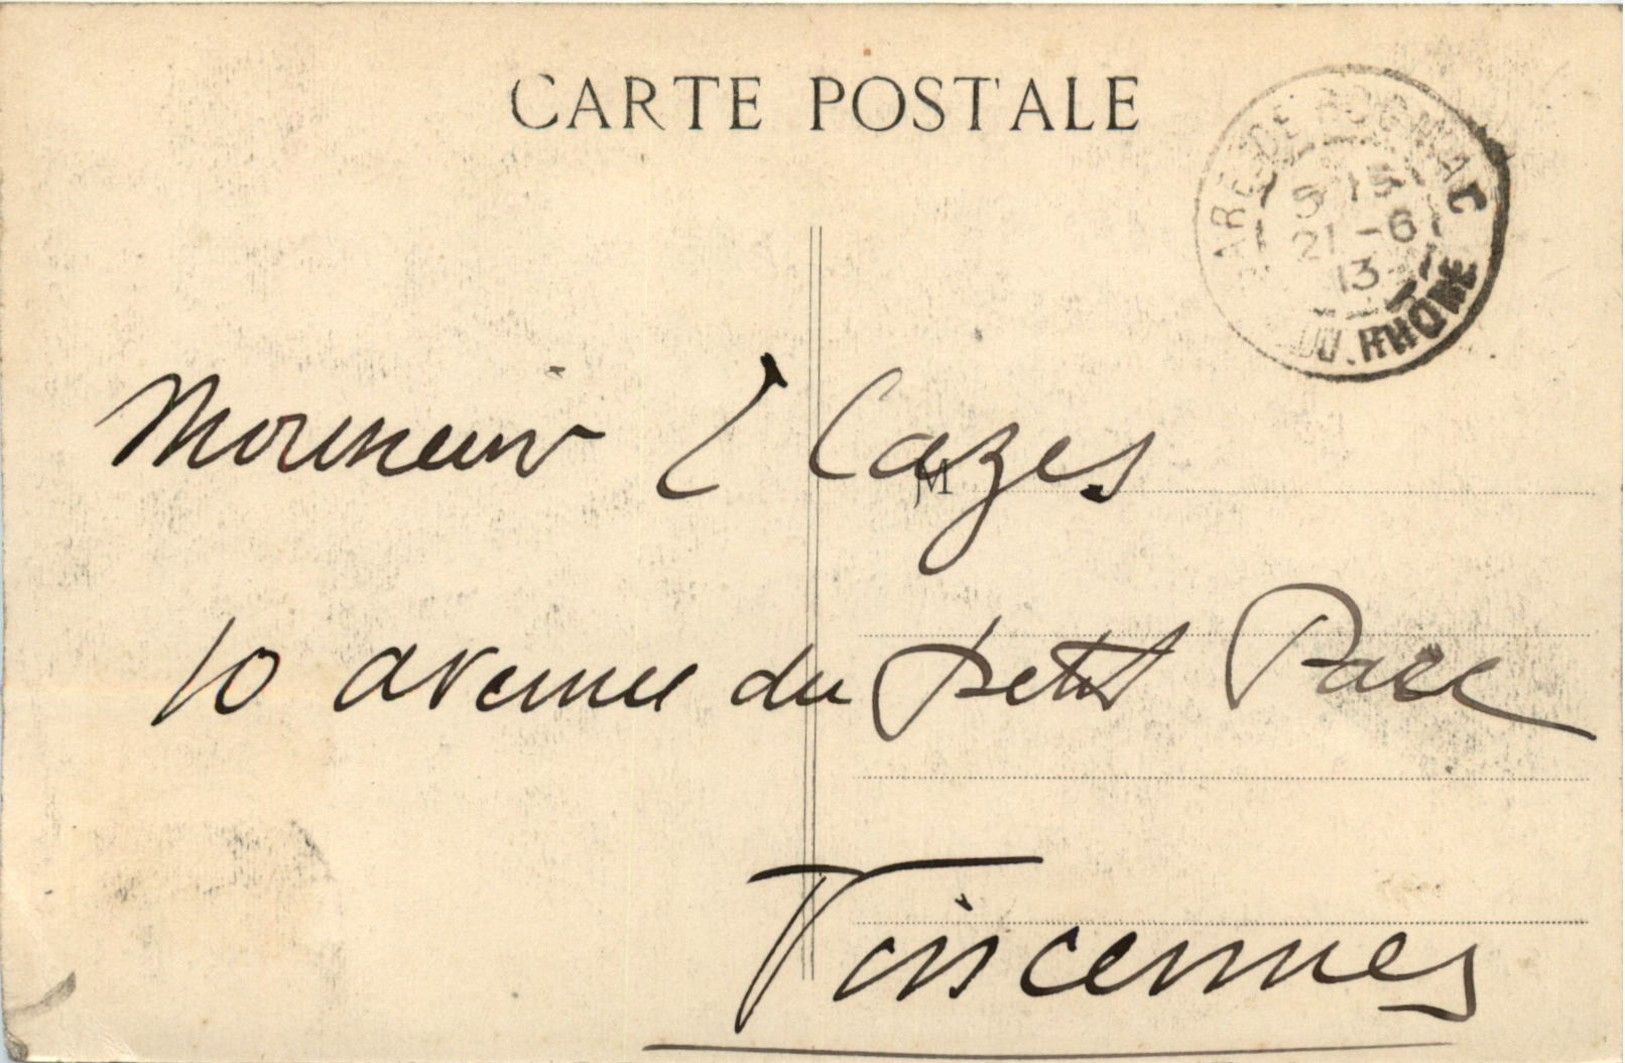 CARTE POSTALE
GARE DE ROGNAC
5 15
21 -6
13
DU RHONE
Monsieur Cazes
M
10 avenue du Petit Parc
Vincennes